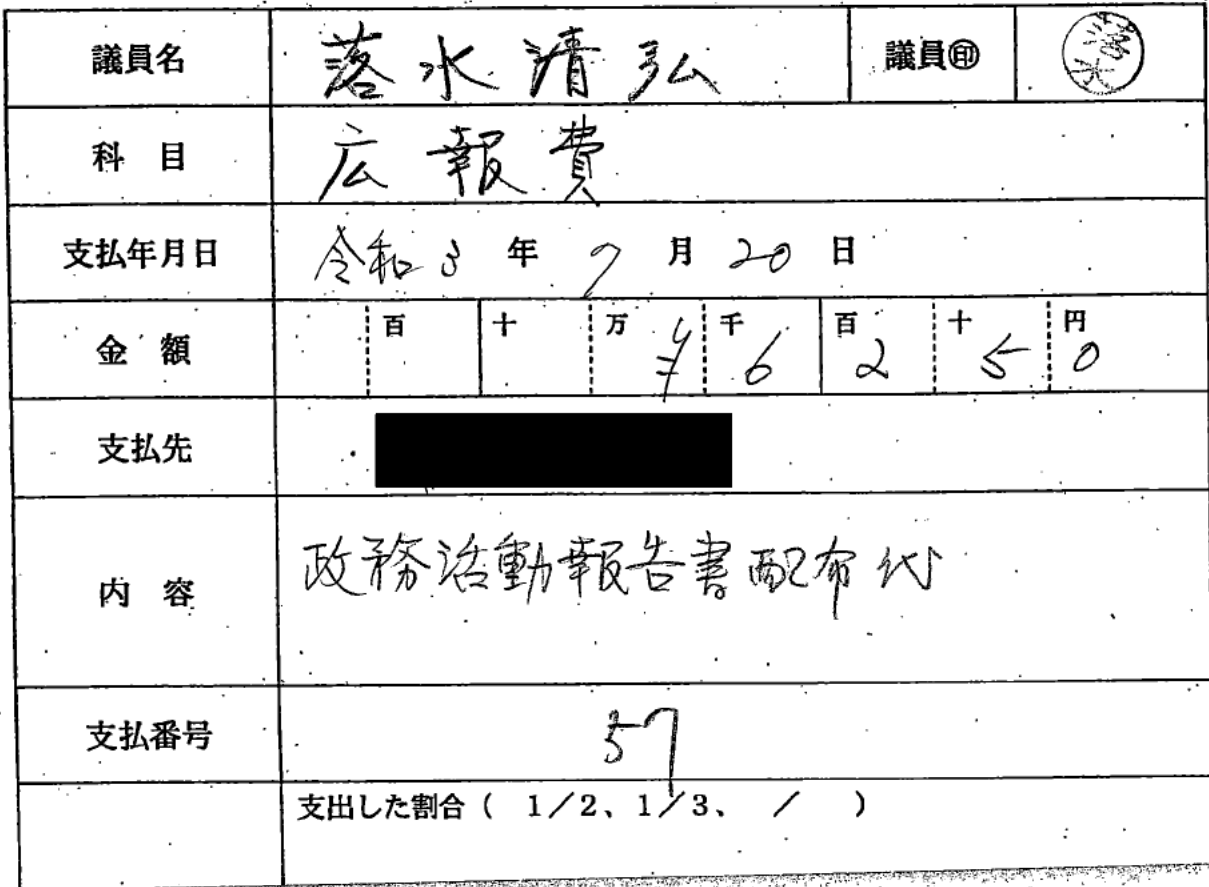 議員名 落水清弘 議員㊞ 落水
科 目 広報費
支払年月日 令和3年9月20日
金 額 百 十 万 ¥ 千 6 百 2 十 5 円 0
支払先
内 容 政務活動報告書配布代
支払番号 57
支出した割合（ 1／2、1／3、 ／ ）